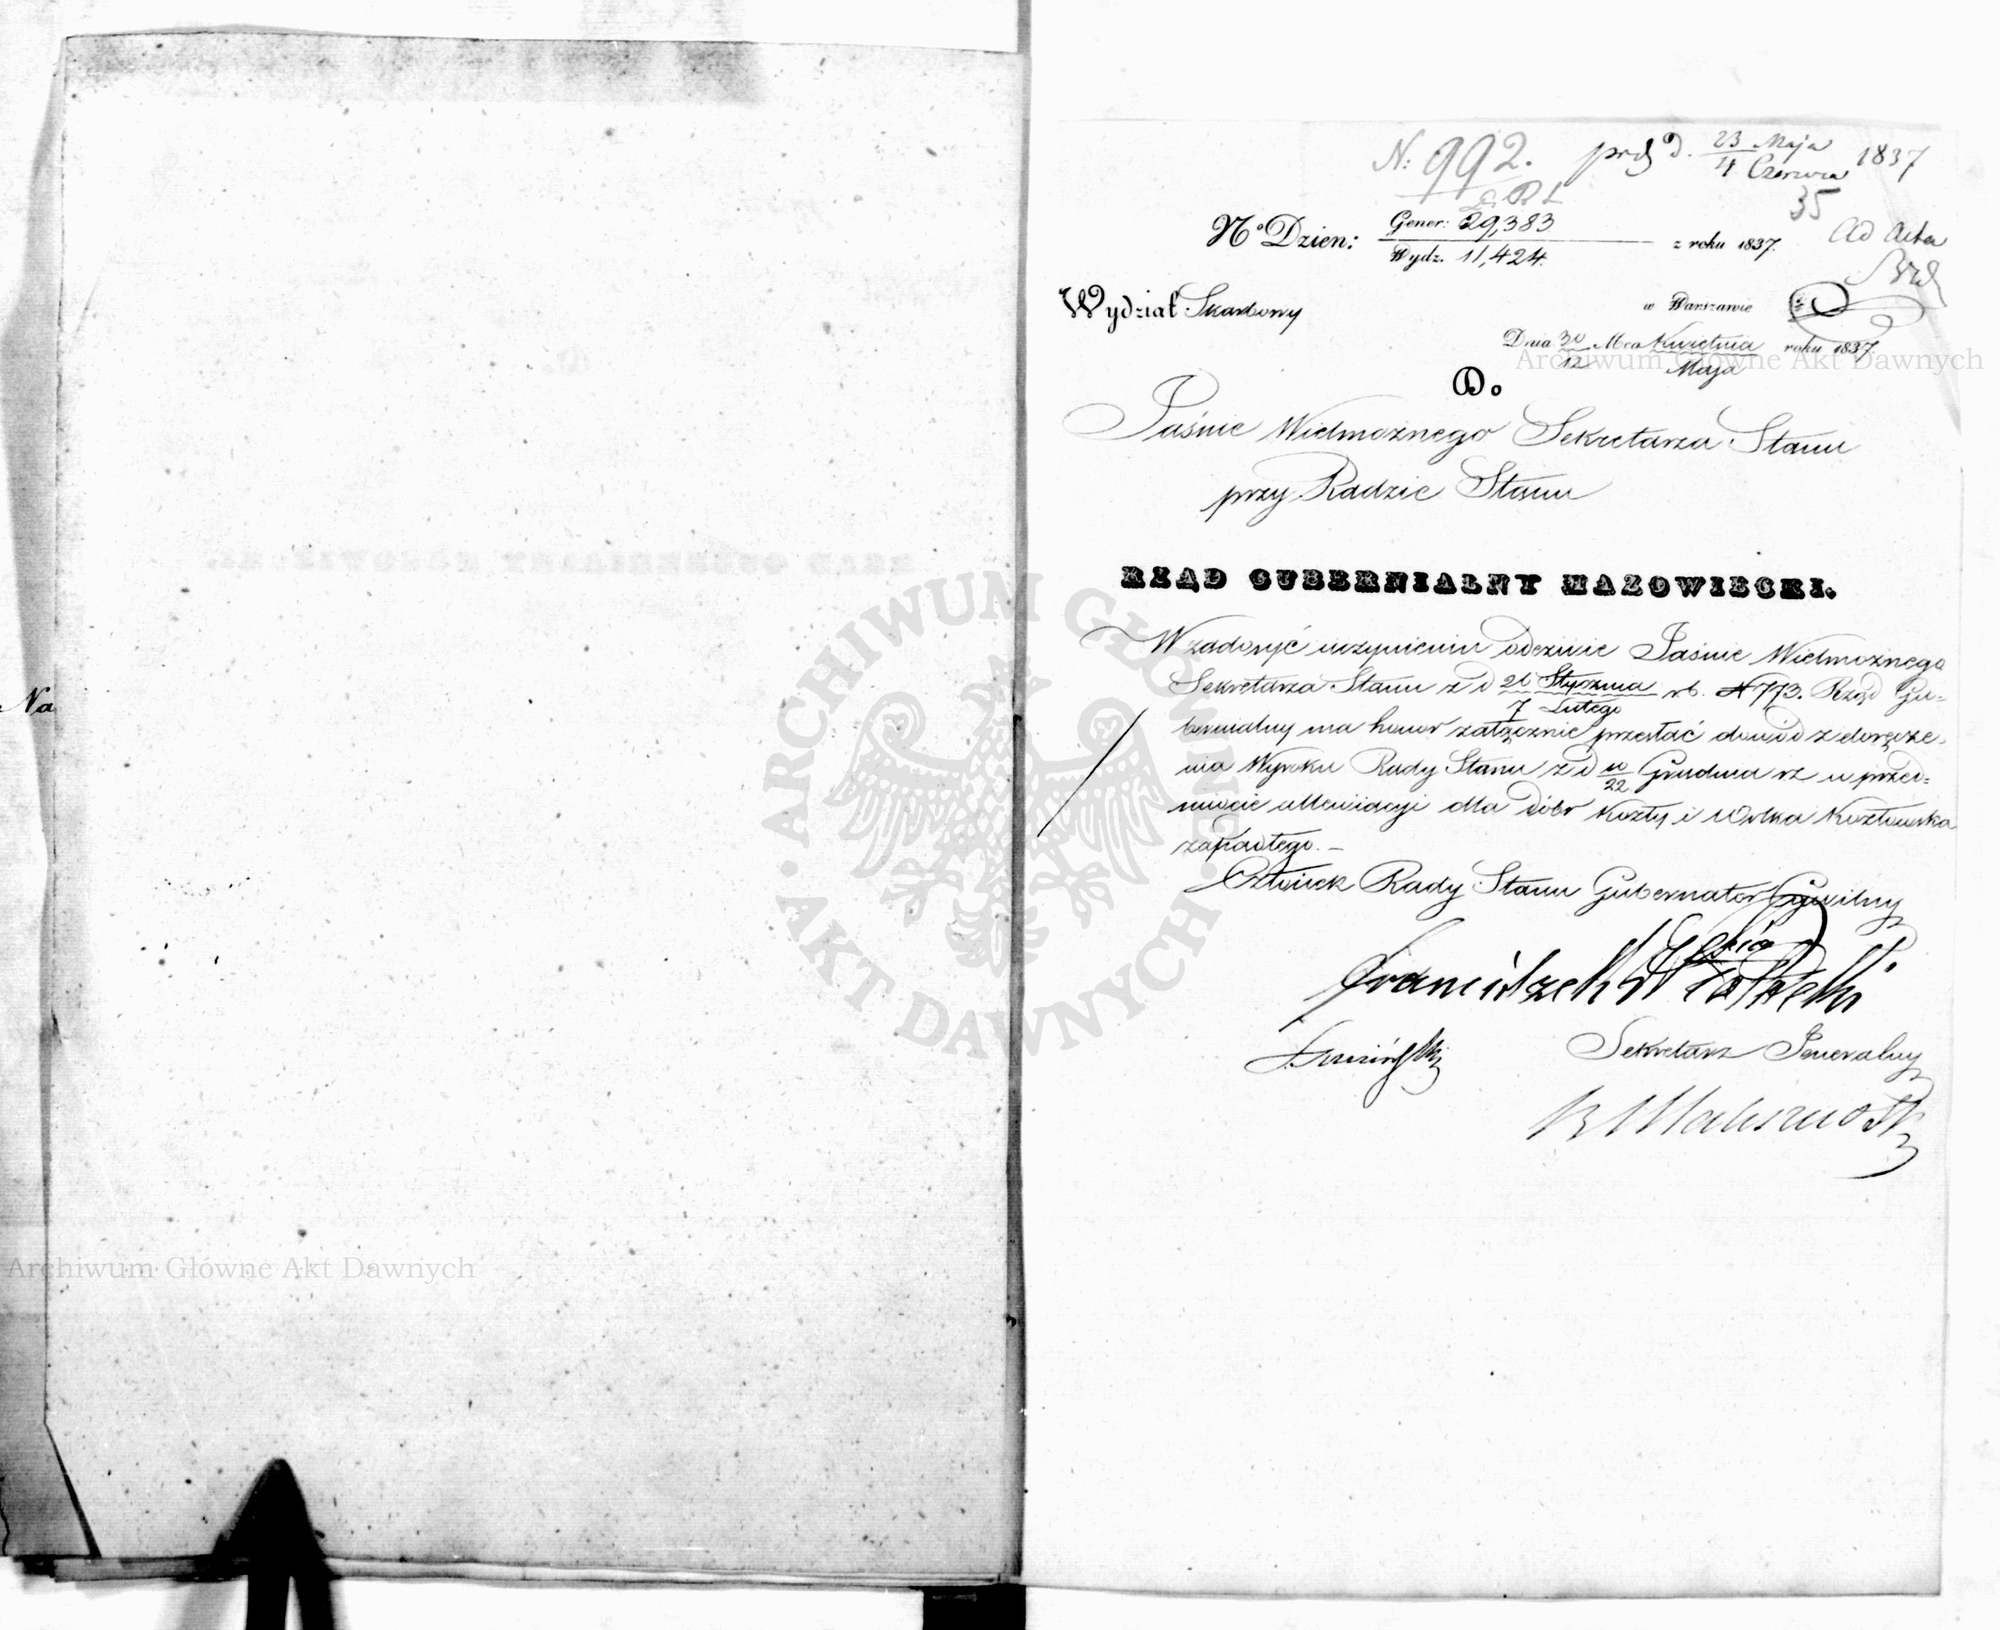 Na
N: 992. 23 Maja 1837
4 Czerwca
35
R S
No Dzien: Gener: 29,383 z roku 1837. Ad Acta
Wydz. 11,424.
Wydział Skarbowy w Warszawie
Dnia 30 Mca Kwietnia roku 1837.
12 Maja
Archiwum Główne Akt Dawnych
Do
Jaśnie Wielmożnego Sekretarza Stanu
przy Radzie Stanu
RZĄD GUBERNIALNY MAZOWIECKI.
W zadosyć uczynieniu odezwie Jaśnie Wielmożnego
Sekretarza Stanu z d 26 Stycznia rb. N 773. Rząd Gu-
7 Lutego
bernialny ma honor załącznie przesłać dowód z doręcze-
nia Wyroku Rady Stanu z d 10/22 Grudnia rz w przed-
miocie allewiacyi dla dóbr Kozły i Wolka Kozłowska
zapadłego. —
Członek Rady Stanu Gubernator Cywilny
Franciszek Potocki
Sekretarz Generalny
ARCHIWUM GŁÓWNE
AKT DAWNYCH
Archiwum Główne Akt Dawnych